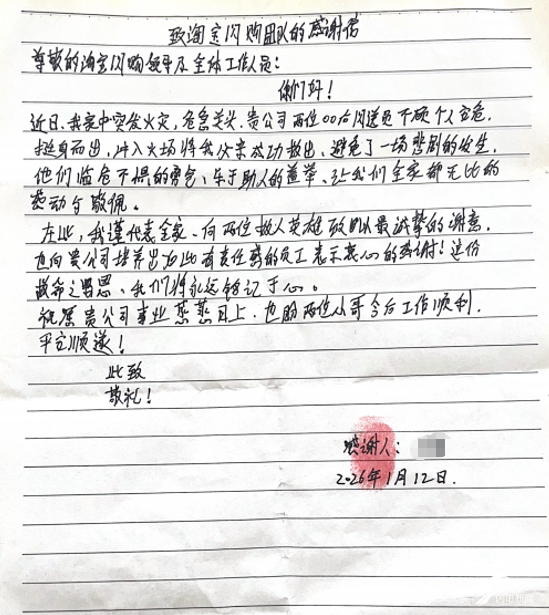 致淘宝闪购团队的感谢信
尊敬的淘宝闪购领导及全体工作人员：
你们好！
近日，我家中突发火灾，危急关头，贵公司两位00后闪送员不顾个人安危，
挺身而出，冲入火场将我父亲成功救出，避免了一场悲剧的发生。
他们临危不惧的勇气、乐于助人的善举，让我们全家都无比的
感动与敬佩。
在此，我谨代表全家，向两位救人英雄致以最诚挚的谢意，
也向贵公司培养出如此有责任感的员工表示衷心的感谢！这份
救命之恩，我们将永远铭记于心。
祝愿贵公司事业蒸蒸日上，也盼两位小哥今后工作顺利，
平安顺遂！
此致
敬礼！
感谢人：
2026年1月12日.